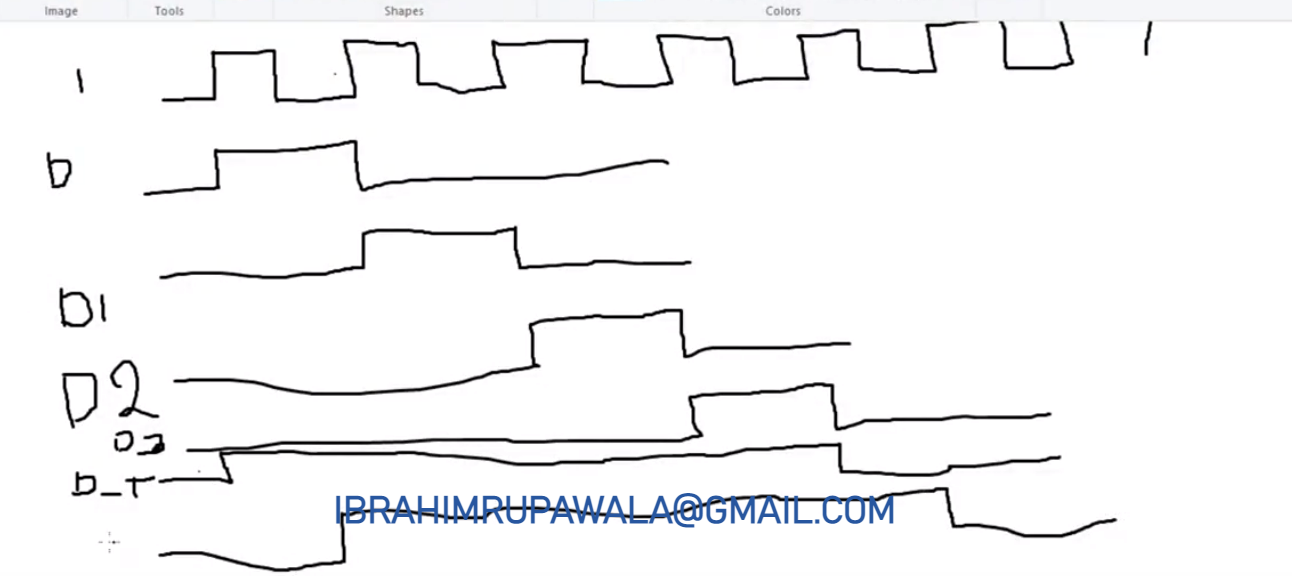 Image Tools Shapes Colors
1
D
D1
D2
D_T
IBRAHIMRUPAWALA@GMAIL.COM